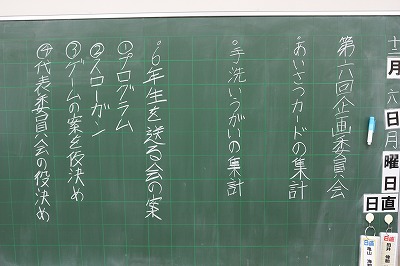 十二月六日月曜日
日直
日直
日直
第六回企画委員会
・あいさつカードの集計
・手洗いうがいの集計
・6年生を送る会の案
①プログラム
②スローガン
③ゲームの案を仮決め
④代表委員会の役決め